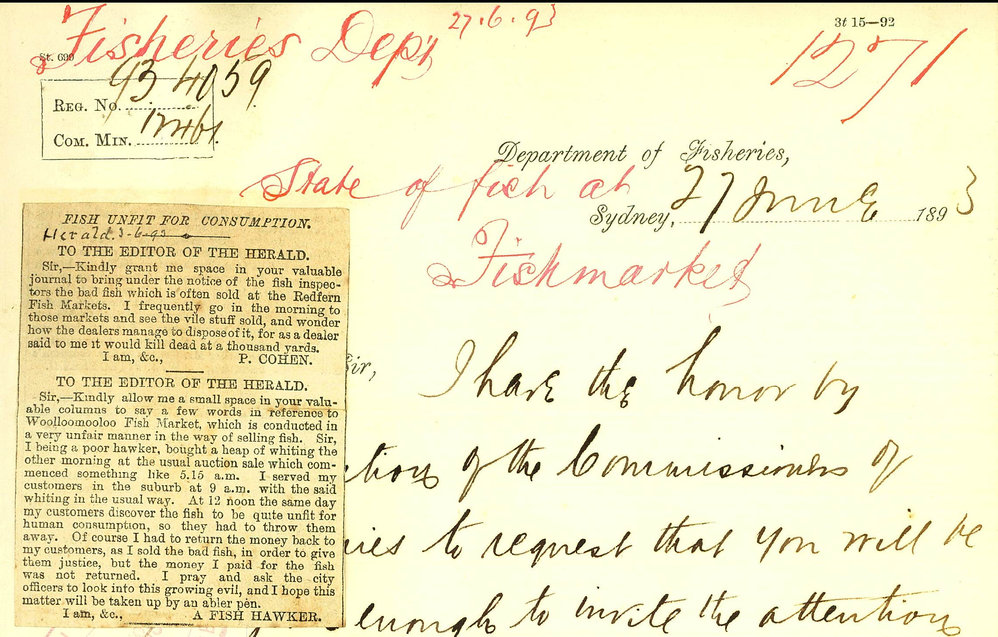 Fisheries Dept 27.6.93
3t 15—92
St. 690
1271
93 4059
REG. No.
COM. MIN.
Department of Fisheries,
State of fish at
Sydney, 27 June 1893
Fishmarket
FISH UNFIT FOR CONSUMPTION.
Herald 3-6-93
TO THE EDITOR OF THE HERALD.
Sir,—Kindly grant me space in your valuable
journal to bring under the notice of the fish inspec-
tors the bad fish which is often sold at the Redfern
Fish Markets. I frequently go in the morning to
those markets and see the vile stuff sold, and wonder
how the dealers manage to dispose of it, for as a dealer
said to me it would kill dead at a thousand yards.
I am, &c., P. COHEN.
TO THE EDITOR OF THE HERALD.
Sir,—Kindly allow me a small space in your valu-
able columns to say a few words in reference to
Woolloomooloo Fish Market, which is conducted in
a very unfair manner in the way of selling fish. Sir,
I being a poor hawker, bought a heap of whiting the
other morning at the usual auction sale which com-
menced something like 5.15 a.m. I served my
customers in the suburb at 9 a.m. with the said
whiting in the usual way. At 12 noon the same day
my customers discover the fish to be quite unfit for
human consumption, so they had to throw them
away. Of course I had to return the money back to
my customers, as I sold the bad fish, in order to give
them justice, but the money I paid for the fish
was not returned. I pray and ask the city
officers to look into this growing evil, and I hope this
matter will be taken up by an abler pen.
I am, &c., A FISH HAWKER.
ir,
I have the honor by
tion of the Commissioners of
ies to request that you will be
enough to invite the attention